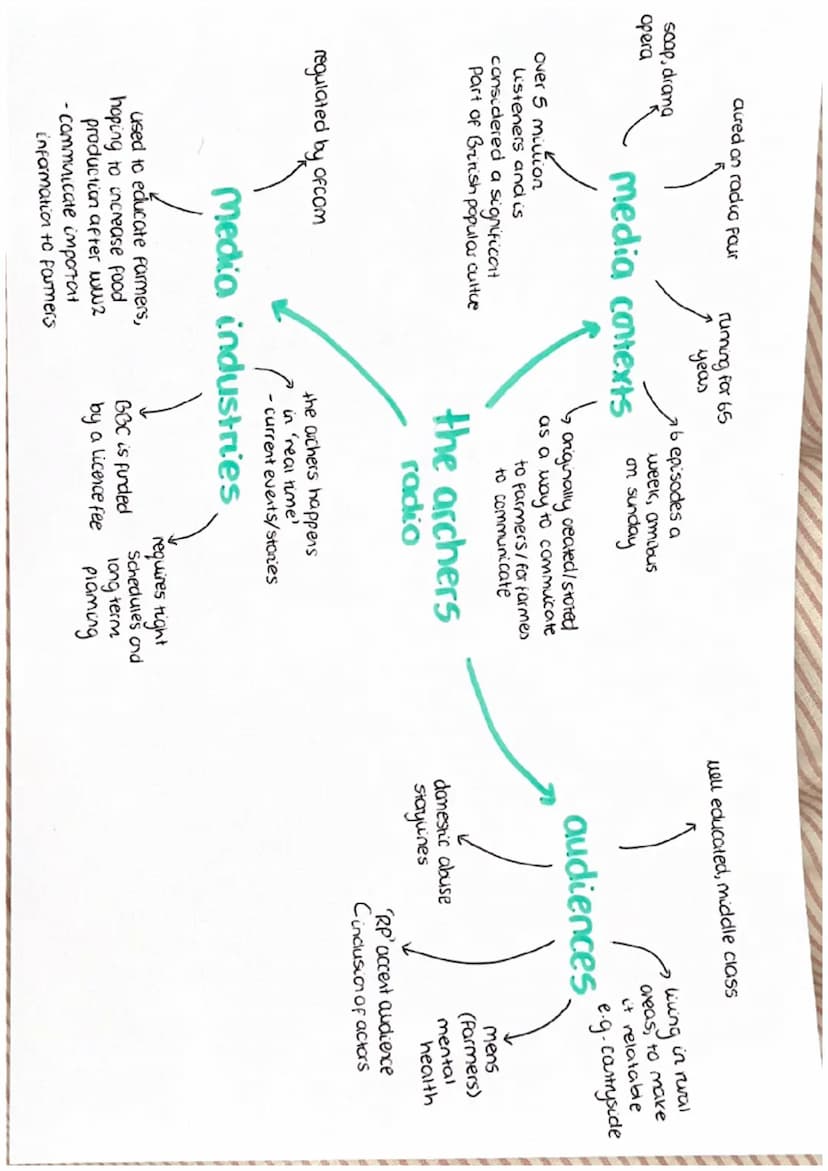 the archers
radio
media contexts
soap, drama
opera
aired on radio four
running for 65
years
6 episodes a
week, omnibus
on sunday
over 5 million
listeners and is
considered a significant
part of British popular culture
originally created/started
as a way to commuicate
to farmers/for farmes
to communicate
media industries
regulated by ofcom
used to educate farmers,
hoping to increase food
production after WW2
- communicate important
information to farmers
the archers happens
in 'real time'
- current events/stories
BBC is funded
by a licence fee
requires tight
schedules and
long term
planning
audiences
well educated, middle class
living in rural
areas, to make
it relatable
e.g. countryside
domestic abuse
storylines
'RP' accent audience
(inclusion of actors
mens
(farmers)
mental
health